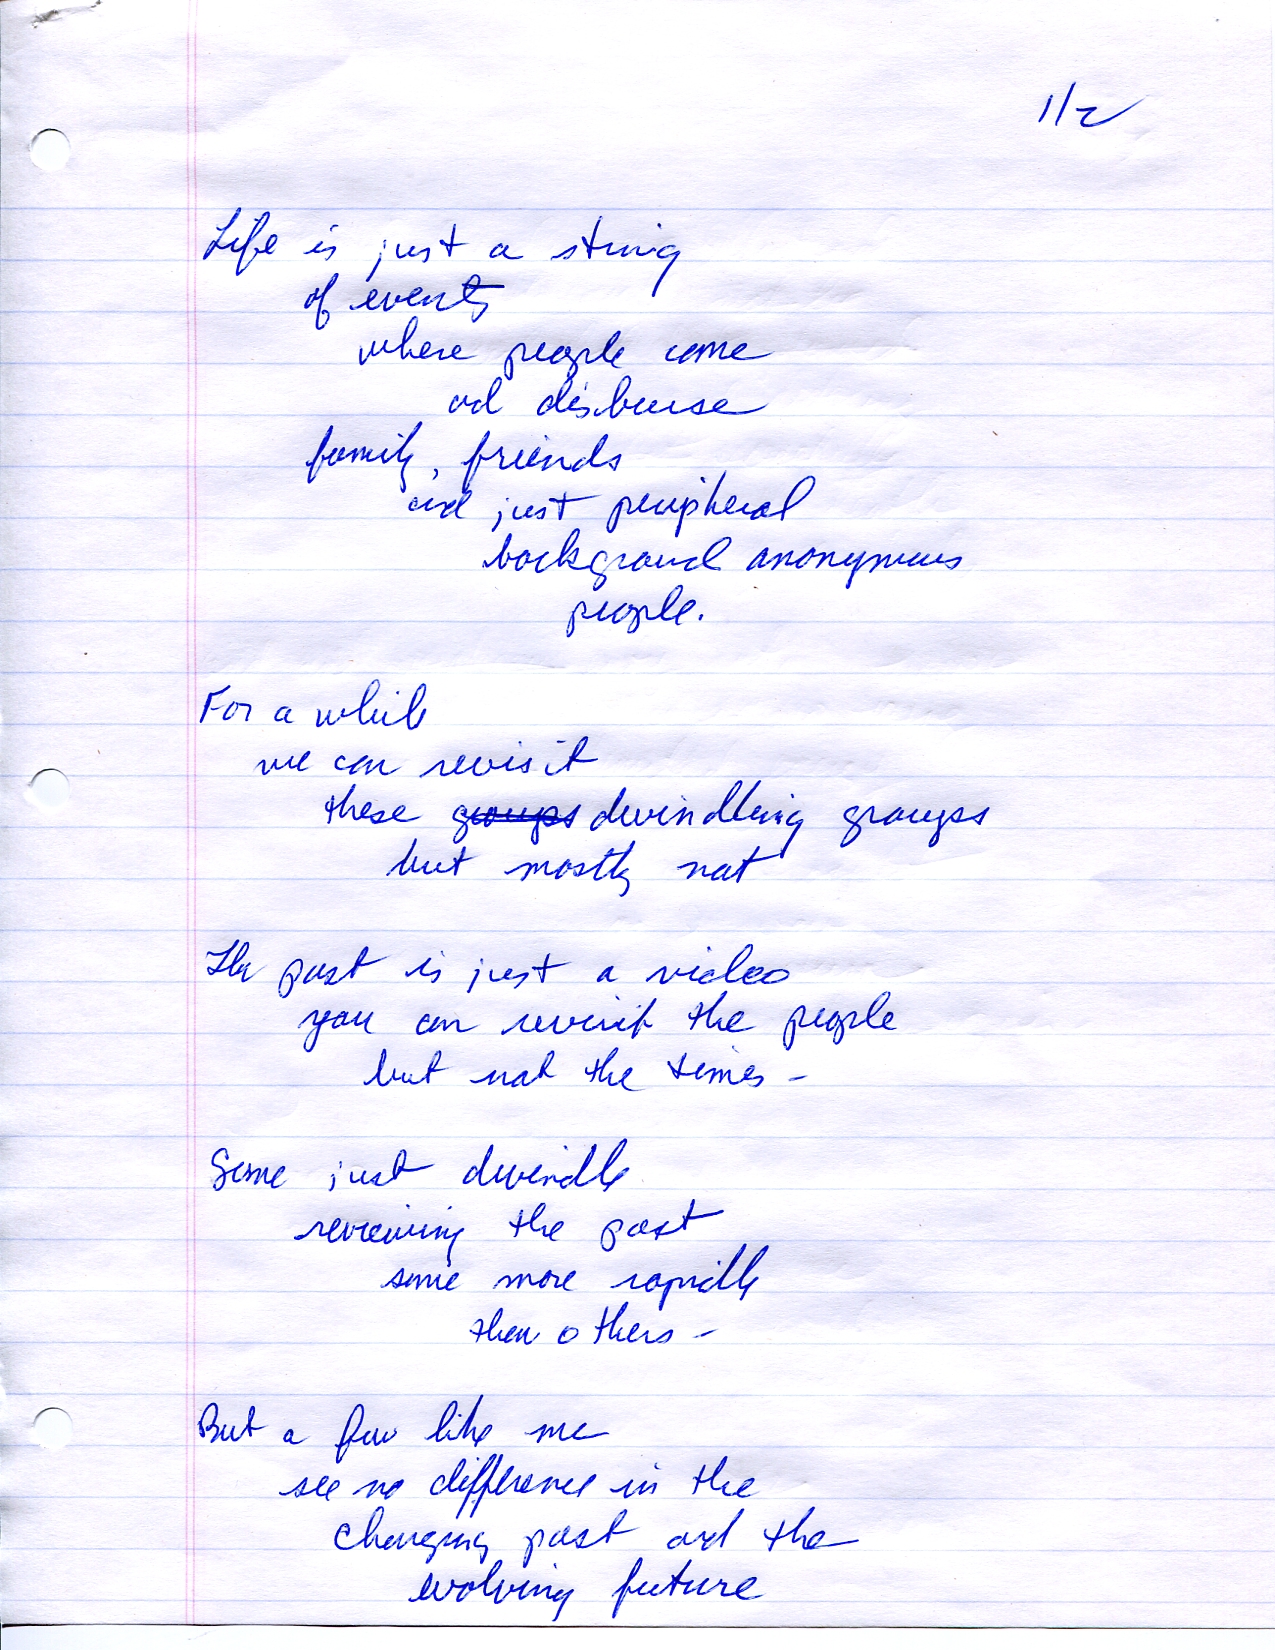 1/2
Life is just a string
of events
where people come
and disburse
family, friends
and just peripheral
background anonymous
people.
For a while
we can revisit
these groups dwindling groups
but mostly not
The past is just a video
you can revisit the people
but not the times -
Some just dwindle
reviewing the past
some more rapidly
then others -
But a few like me
see no difference in the
changing past and the
evolving future